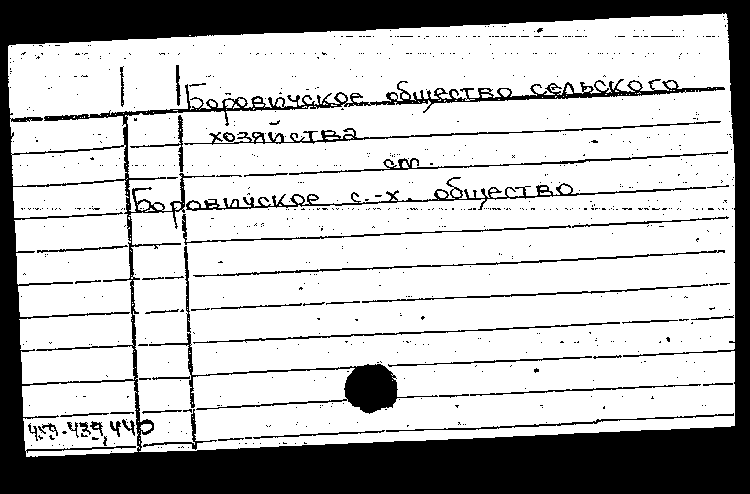 Боровичское общество сельского
хозяйства
см.
Боровичское с.-х. общество
439,440